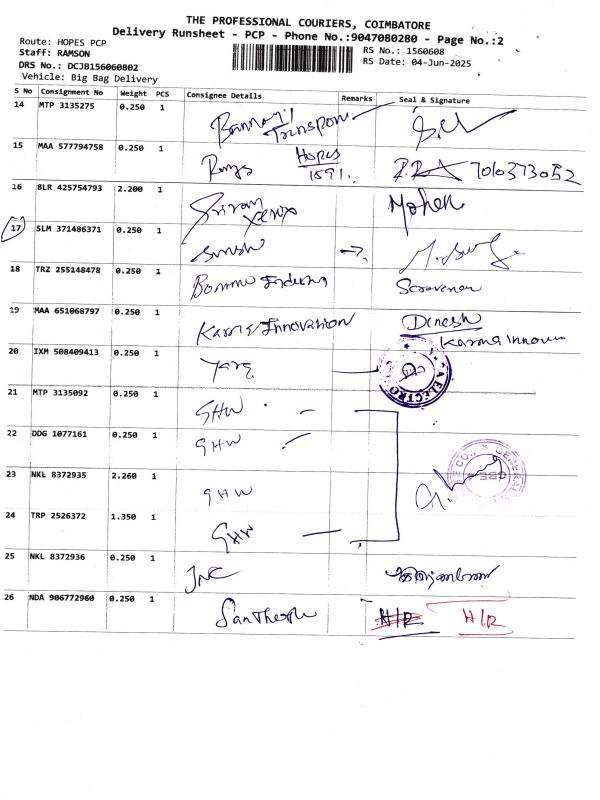 THE PROFESSIONAL COURIERS, COIMBATORE
Delivery Runsheet - PCP - Phone No.:9047080280 - Page No.:2
Route: HOPES PCP
RS No.: 1560608
Staff: RAMSON
RS Date: 04-Jun-2025
DRS No.: DCJB156060802
Vehicle: Big Bag Delivery
S No Consignment No Weight PCS Consignee Details Remarks Seal & Signature
14 MTP 3135275 0.250 1 Transport
15 MAA 577794758 0.250 1 Hopes 7010373052
1891.
16 BLR 425754793 2.200 1 Sriram Xerox Mohan
17 SLM 371486371 0.250 1 Suresh →
18 TRZ 255148478 0.250 1 Saravanan
19 MAA 651068797 0.250 1 Karma Innovation Dinesh
Karma Innov
20 IXM 508409413 0.250 1 ELECTRO
21 MTP 3135092 0.250 1 GHW -
22 DDG 1077161 0.250 1 GHW -
23 NKL 8372935 2.260 1 GHW GENERAL
24 TRP 2526372 1.350 1 GHW -
25 NKL 8372936 0.250 1 JNC
26 NDA 906772960 0.250 1 Santhosh H/R H/R